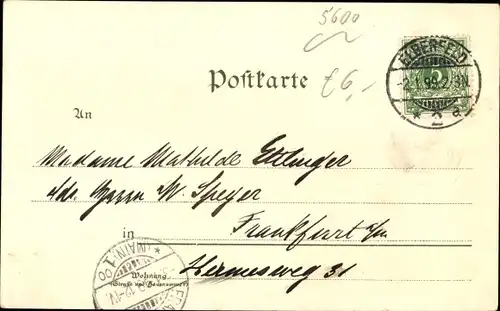 5600
ELBERFELD
5
-2.1.99.
* 2 a
Postkarte
€6,-
An
Madame Mathilde Ettlinger
Herrn W. Speyer
in Frankfurt a/m
(MAIN) 1
Hermesweg 31
Wohnung
(Straße und Hausnummer)